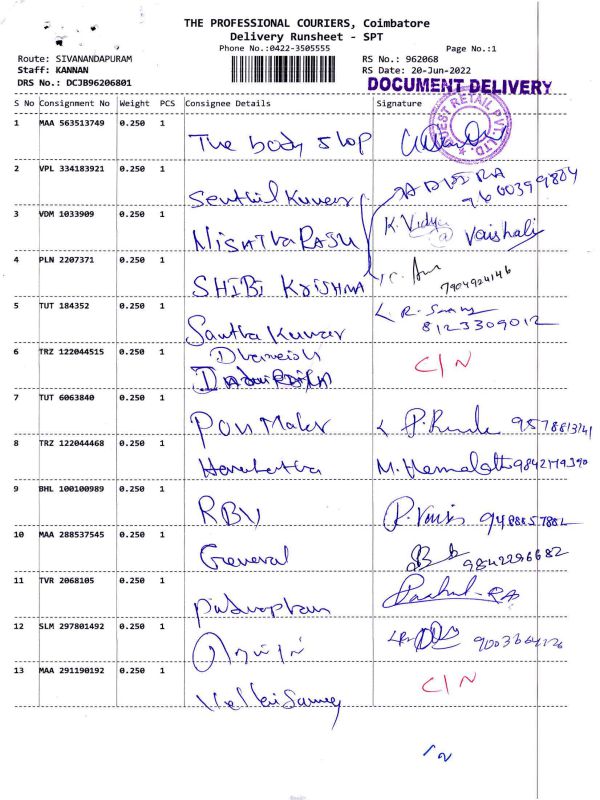 THE PROFESSIONAL COURIERS, Coimbatore
Delivery Runsheet - SPT
Phone No.:0422-3505555
Page No.:1
Route: SIVANANDAPURAM
RS No.: 962068
Staff: KANNAN
RS Date: 20-Jun-2022
DRS No.: DCJB96206801
DOCUMENT DELIVERY
S No Consignment No Weight PCS Consignee Details Signature
1 MAA 563513749 0.250 1 The body shop
RETAIL PVT. LTD.
2 VPL 334183921 0.250 1 Senthil Kumar
3 VDM 1033909 0.250 1 K. Vidya Vaishali
4 PLN 2207371 0.250 1 SHIBI KRISHNA 7904924146
5 TUT 184352 0.250 1 Santha Kumar 8123309012
6 TRZ 122044515 0.250 1 C/N
7 TUT 6063840 0.250 1 Pon Malar
8 TRZ 122044468 0.250 1 M. Hemalatha
9 BHL 100100989 0.250 1 RBV
10 MAA 288537545 0.250 1 General 9842296682
11 TVR 2068105 0.250 1
12 SLM 297801492 0.250 1
13 MAA 291190192 0.250 1 C/N